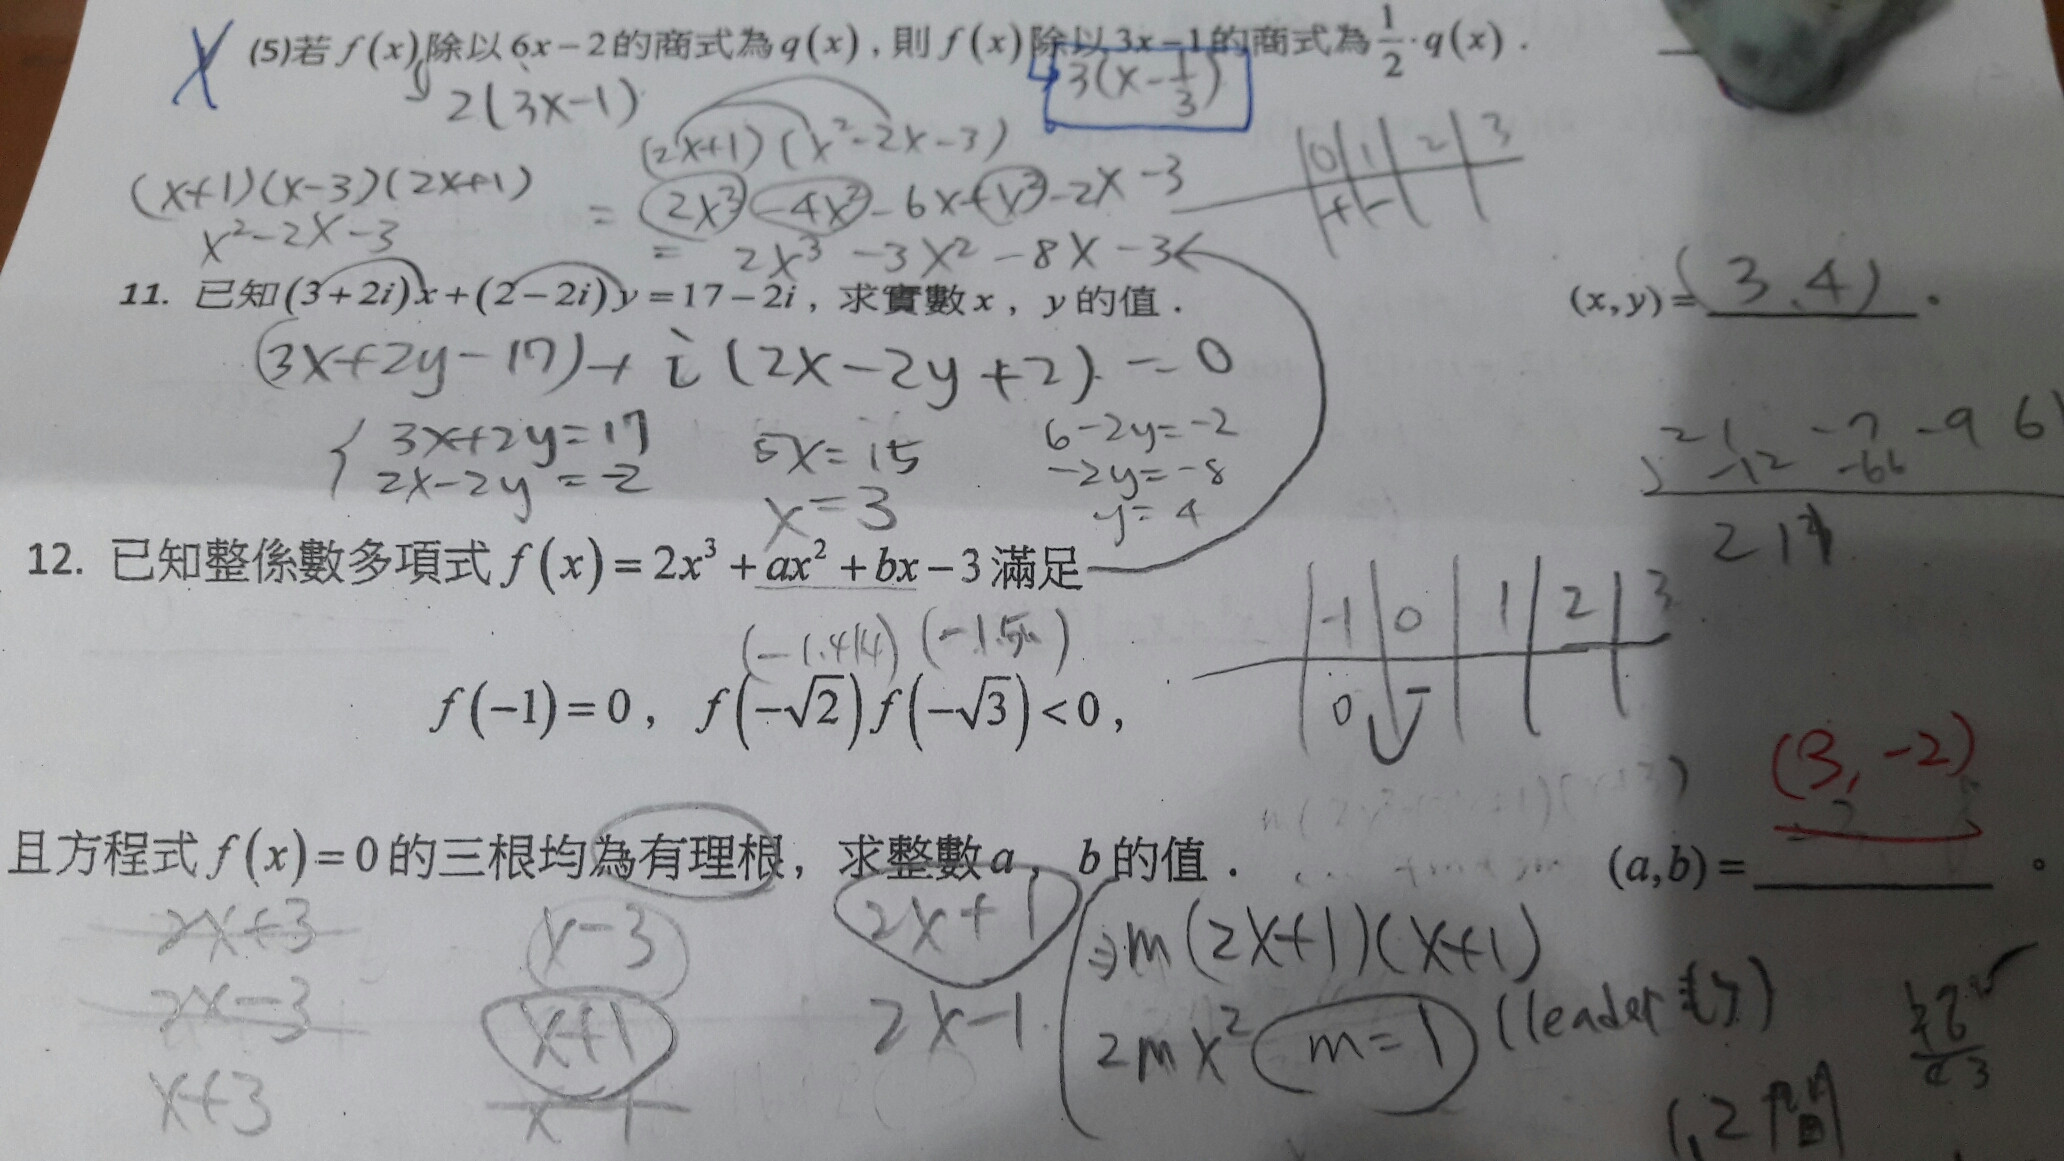 (5)若 f(x)除以 6x-2的商式為 q(x),則 f(x)除以 3x-1的商式為 1/2·q(x).
2(3x-1)
3(x-1/3)
(2x+1)(x²-2x-3)
0 1 2 3
+ -
(x+1)(x-3)(2x+1)
= 2x³-4x²-6x+x²-2x-3
x²-2x-3
= 2x³-3x²-8x-3
11. 已知(3+2i)x+(2-2i)y=17-2i,求實數x,y的值. (x,y)=(3,4)。
(3x+2y-17)+i(2x-2y+2)=0
3x+2y=17 5x=15 6-2y=-2
2x-2y=-2 x=3 -2y=-8
y=4
21 -7 -9 6
-12 -66
12. 已知整係數多項式 f(x)=2x³+ax²+bx-3滿足
-1 0 1 2 3
0 -
(-1.414)
f(-1)=0, f(-√2)f(-√3)<0,
(3,-2)
且方程式 f(x)=0的三根均為有理根,求整數a,b的值. (a,b)= 。
2x+3 x-3 2x+1 ⇒m(2x+1)(x+1)
2x-3 x+1 2x-1 2mx² m=1 (leader
x+3 x-1
1,2間